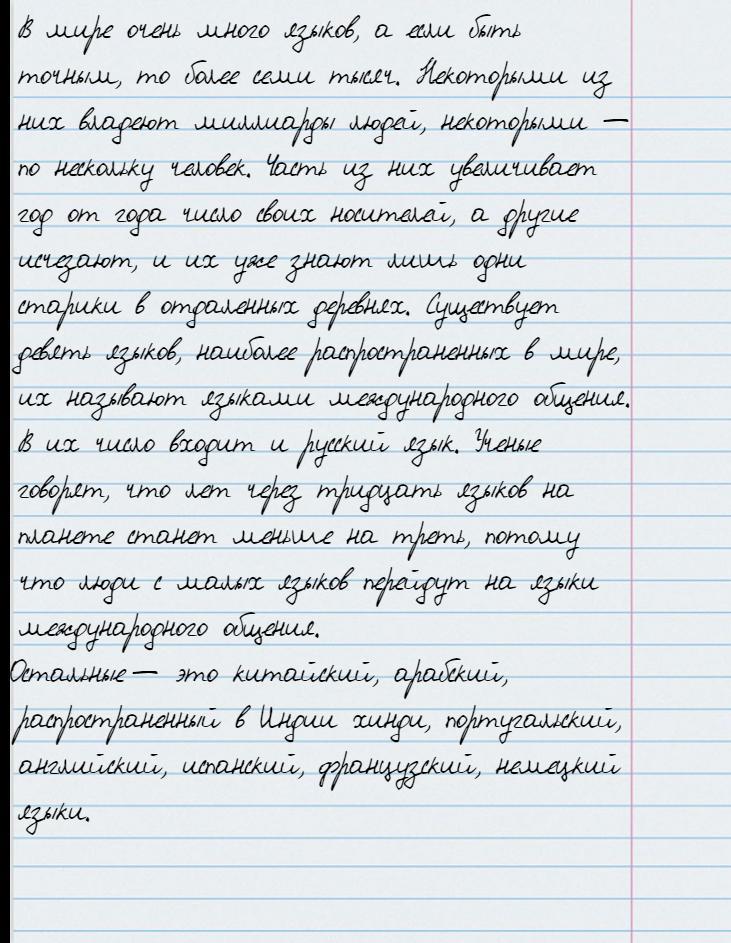 В мире очень много языков, а если быть
точным, то более семи тысяч. Некоторыми из
них владеют миллиарды людей, некоторыми —
по нескольку человек. Часть из них увеличивает
год от года число своих носителей, а другие
исчезают, и их уже знают лишь одни
старики в отдаленных деревнях. Существует
девять языков, наиболее распространенных в мире,
их называют языками международного общения.
В их число входит и русский язык. Ученые
говорят, что лет через тридцать языков на
планете станет меньше на треть, потому
что люди с малых языков перейдут на языки
международного общения.
Остальные — это китайский, арабский,
распространенный в Индии хинди, португальский,
английский, испанский, французский, немецкий
языки.